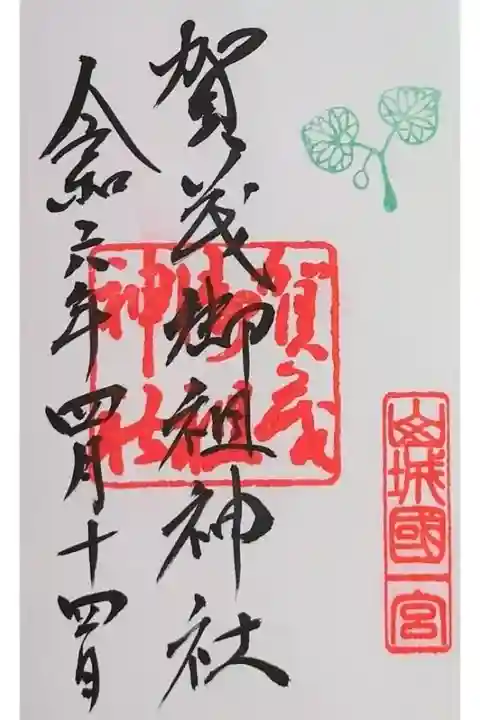 山城國一宮
賀茂御祖神社
賀茂
御祖
神社
令和六年四月十四日